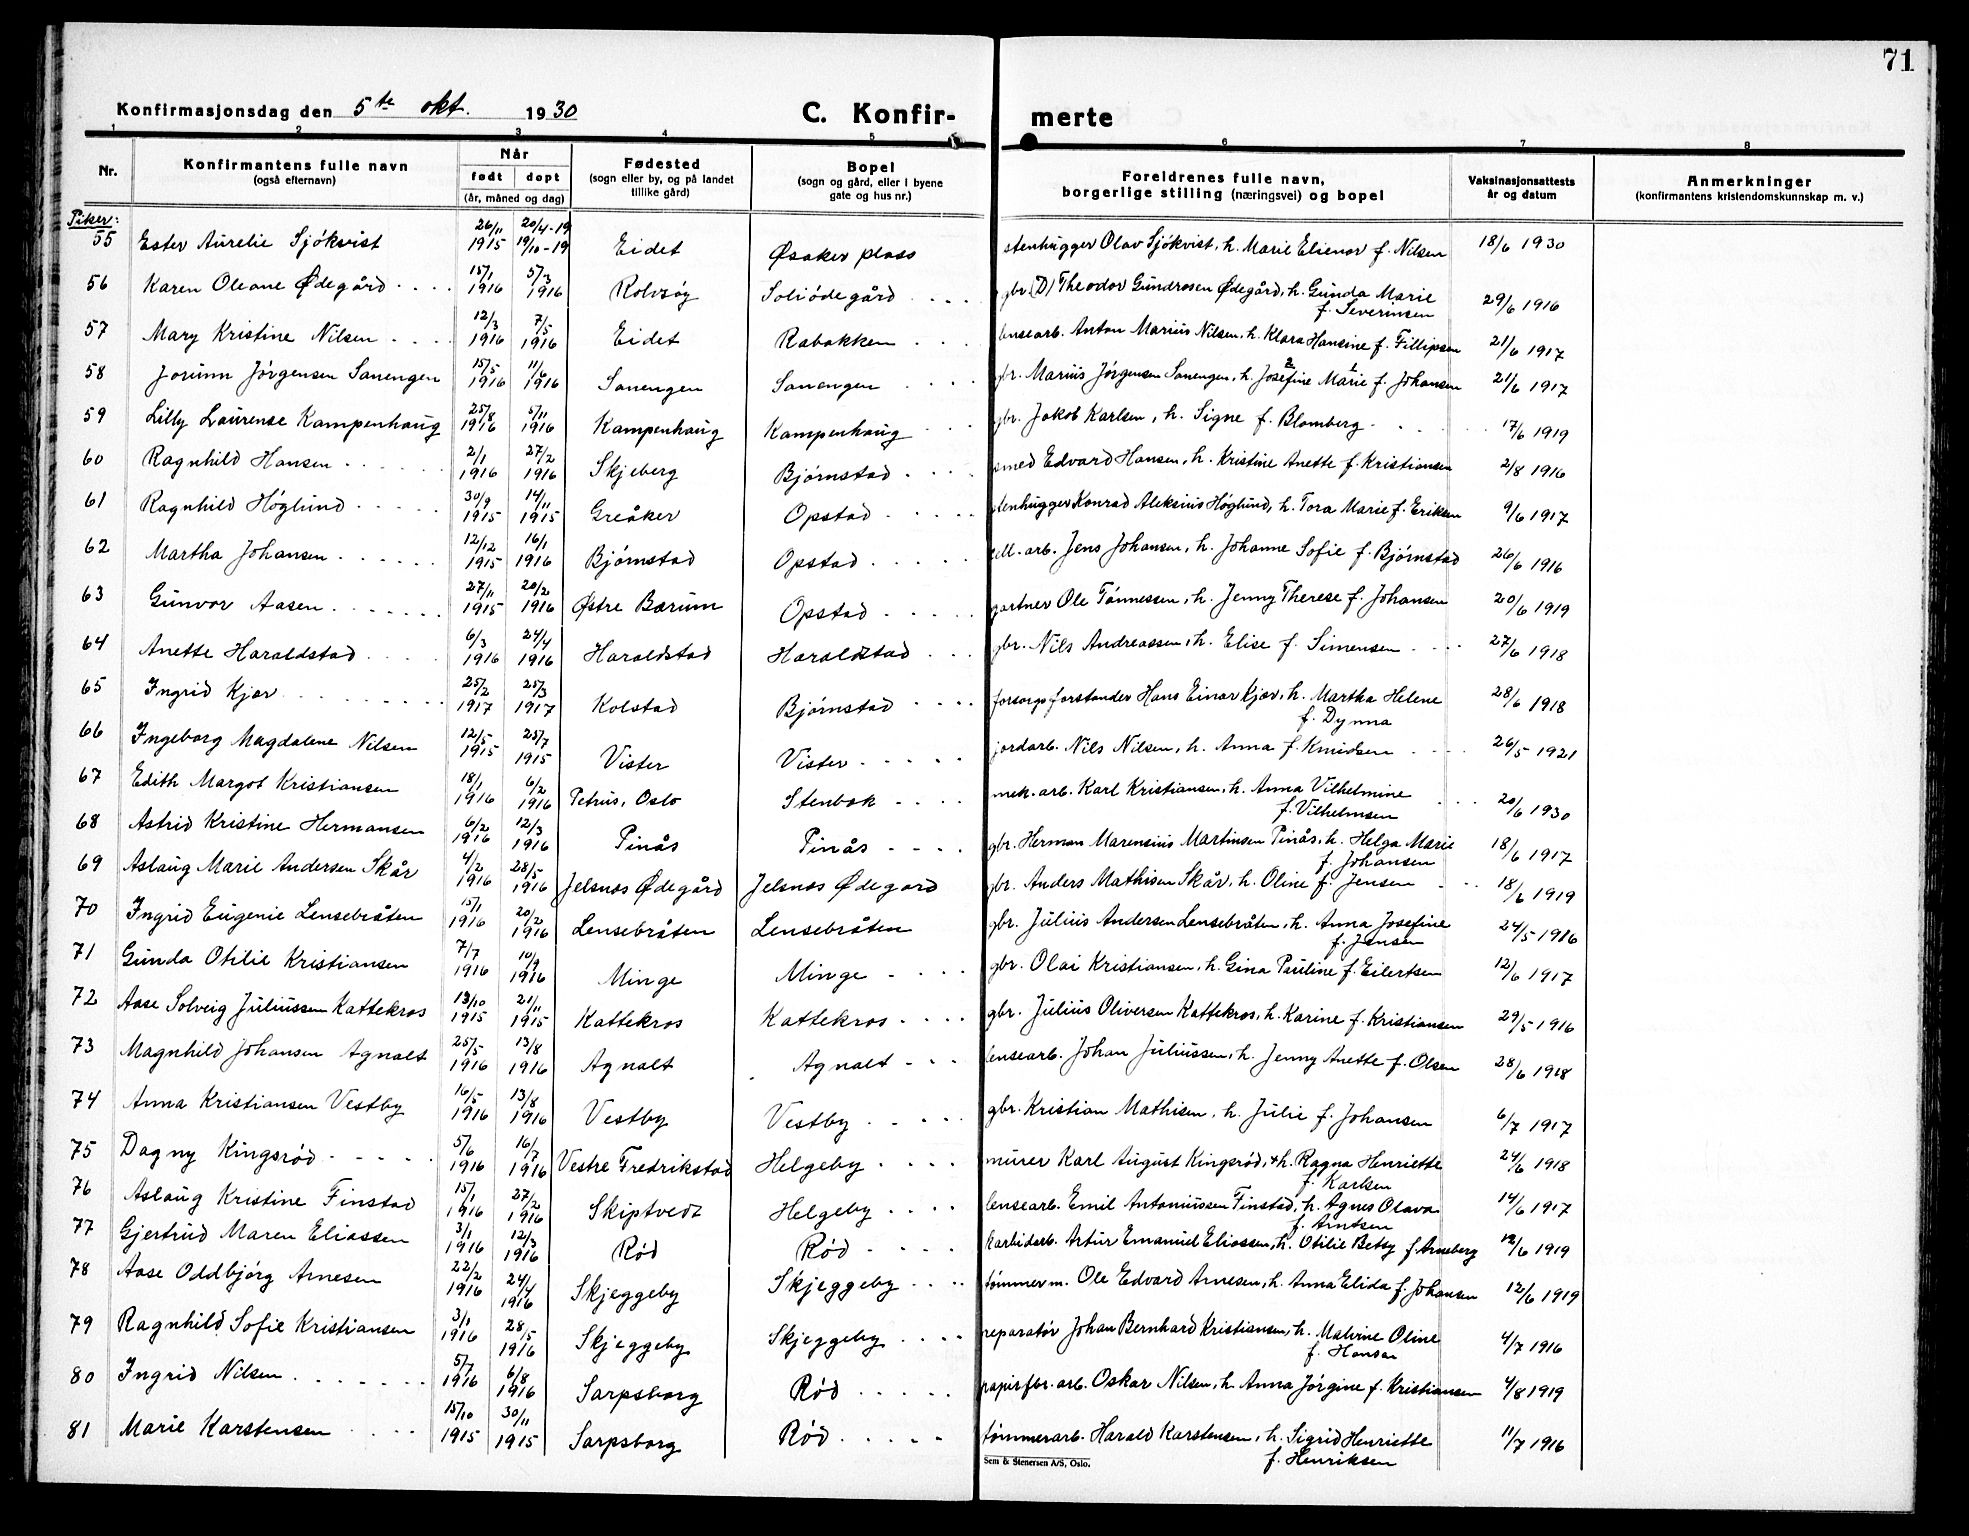 71
Konfirmasjonsdag den 5te okt. 1930 C. Konfir- merte
1 2 3 4 5 6 7 8
Nr. Konfirmantens fulle navn (også efternavn) Når født døpt (år, måned og dag) Fødested (sogn eller by, og på landet tillike gård) Bopel (sogn og gård, eller i byene gate og hus nr.) Foreldrenes fulle navn, borgerlige stilling (næringsvei) og bopel Vaksinasjonsattests år og datum Anmerkninger (konfirmantens kristendomskunnskap m. v.)
Piker:
55 Ester Aurelie Sjökvist 26/11 1915 20/4-19 19/10-19 Eidet Øsaker plass stenhugger Olav Sjökvist, h. Marie Elienor f. Nilsen 18/6 1930
56 Karen Oleane Ødegård 15/1 1916 5/3 1916 Rolvsøy Soliødegård gbr. (D) Theodor Gundrosen Ødegård, h. Gunda Marie f. Severinsen 29/6 1916
57 Mary Kristine Nilsen 12/3 1916 7/5 1916 Eidet Rabakken lensearb. Anton Marius Nilsen, h. Klara Hansine f. Fillipsen 21/6 1917
58 Jorunn Jørgensen Sanengen 15/5 1916 11/6 1916 Sanengen Sanengen gbr. Marius Jørgensen Sanengen, h. Josefine Marie f. Johansen 21/6 1917
59 Lilly Laurense Kampenhaug 25/8 1916 5/11 1916 Kampenhaug Kampenhaug gbr. Jakob Karlsen, h. Signe f. Blomberg 17/6 1919
60 Ragnhild Hansen 2/1 1916 27/2 1916 Skjeberg Bjørnstad smed Edvard Hansen, h. Kristine Anette f. Kristiansen 2/8 1916
61 Ragnhild Høglund 30/9 1915 14/11 1915 Greåker Opstad stenhugger Konrad Aleksius Høglund, h. Tora Marie f. Eriksen 9/6 1917
62 Martha Johansen 12/12 1915 16/1 1916 Bjørnstad Opstad cell.-arb. Jens Johansen, h. Johanne Sofie f. Bjørnstad 26/6 1916
63 Gunvor Aasen 27/11 1915 20/2 1916 Østre Bærum Opstad gartner Ole Tønnessen, h. Jenny Therese f. Johansen 20/6 1919
64 Anette Haraldstad 6/3 1916 24/4 1916 Haraldstad Haraldstad gbr. Nils Andreassen, h. Elise f. Simensen 27/6 1918
65 Ingrid Kjær 25/2 1917 25/3 1917 Kolstad Bjørnstad forsorgsforstander Hans Einar Kjær, h. Martha Helene f. Dynna 28/6 1918
66 Ingeborg Magdalene Nilsen 12/5 1915 25/7 1915 Vister Vister jordarb. Nils Nilsen, h. Anna f. Knudsen 26/5 1921
67 Edith Margot Kristiansen 18/1 1916 6/2 1916 Petrus, Oslo Stenbak mek.-arb. Karl Kristiansen, h. Anna Vilhelmine f. Vilhelmsen 20/6 1930
68 Astrid Kristine Hermansen 6/2 1916 12/3 1916 Pinås Pinås gbr. Herman Marensius Martinsen Pinås, h. Helga Marie f. Johansen 18/6 1917
69 Aslaug Marie Andersen Skår 4/2 1916 28/5 1916 Jelsnes Ødegård Jelsnes Ødegård gbr. Anders Mathisen Skår, h. Oline f. Jensen 18/6 1919
70 Ingrid Eugenie Lensebråten 15/1 1916 20/2 1916 Lensebråten Lensebråten gbr. Julius Andersen Lensebråten, h. Anna Josefine f. Jensen 24/5 1916
71 Gunda Otilie Kristiansen 7/7 1916 10/9 1916 Minge Minge gbr. Olai Kristiansen, h. Gina Pauline f. Eilertsen 12/6 1917
72 Aase Solveig Juliussen Kattekros 13/10 1915 21/11 1915 Kattekros Kattekros gbr. Julius Oliversen Kattekros, h. Karine f. Kristiansen 29/5 1916
73 Magnhild Johansen Agnalt 25/5 1916 13/8 1916 Agnalt Agnalt lensearb. Johan Juliussen, h. Jenny Anette f. Olsen 28/6 1918
74 Anna Kristiansen Vestby 16/5 1916 13/8 1916 Vestby Vestby gbr. Kristian Mathisen, h. Julie f. Johansen 6/7 1917
75 Dagny Kingsrød 5/6 1916 16/7 1916 Vestre Fredrikstad Helgeby murer Karl August Kingsrød, h. Ragna Henriette f. Karlsen 24/6 1918
76 Aslaug Kristine Finstad 15/1 1916 27/2 1916 Skiptvedt Helgeby lensearb. Emil Antoniussen Finstad, h. Agnes Olava f. Arntsen 14/6 1917
77 Gjertrud Maren Eliassen 3/1 1916 12/3 1916 Rød Rød karbidarb. Artur Emanuel Eliassen, h. Otilie Betsy f. Arneberg 12/6 1919
78 Aase Oddbjørg Arnesen 22/2 1916 24/4 1916 Skjeggeby Skjeggeby tømmerm. Ole Edvard Arnesen, h. Anna Elida f. Johansen 12/6 1919
79 Ragnhild Sofie Kristiansen 3/1 1916 28/5 1916 Skjeggeby Skjeggeby reparatør Johan Bernhard Kristiansen, h. Malvine Oline f. Hansen 4/7 1916
80 Ingrid Nilsen 5/7 1916 6/8 1916 Sarpsborg Rød papirfbr.arb. Oskar Nilsen, h. Anna Jørgine f. Kristiansen 4/8 1919
81 Marie Karstensen 15/10 1915 30/11 1915 Sarpsborg Rød tømmerarb. Harald Karstensen, h. Sigrid Henriette f. Henriksen 11/7 1916
Sem & Stenersen A/S, Oslo.